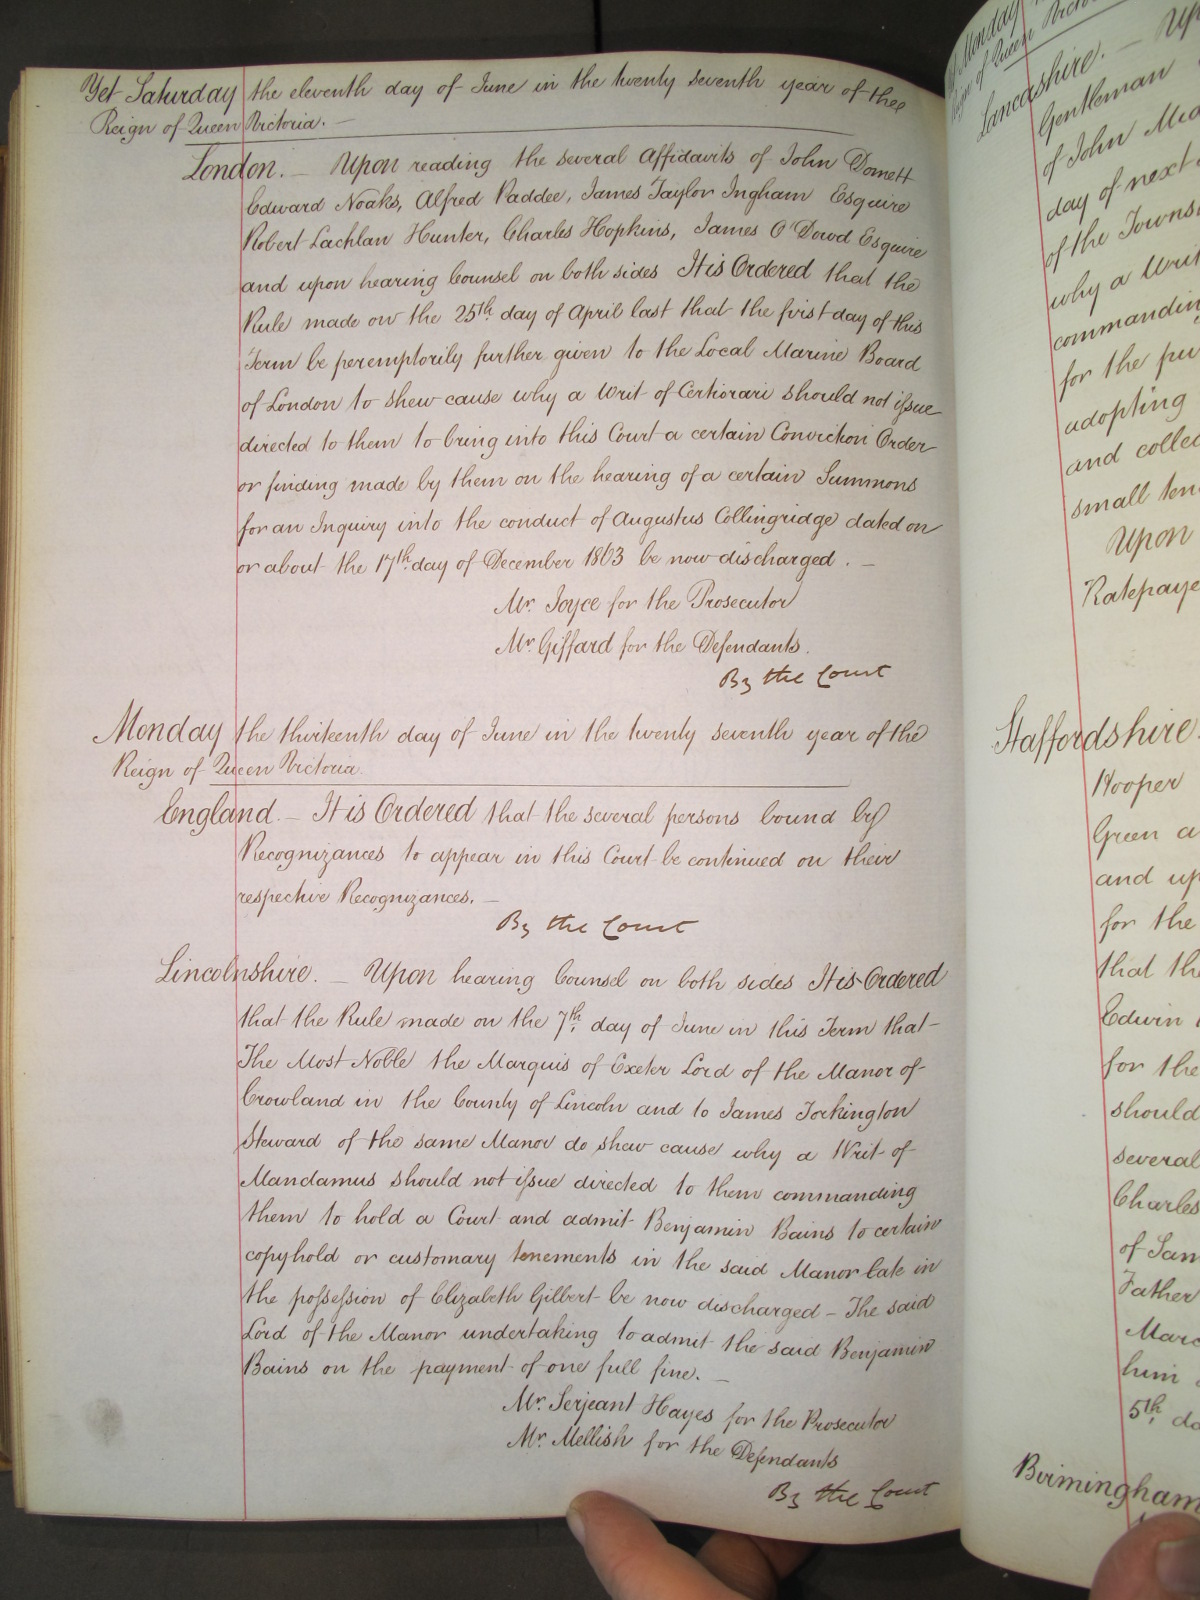 Yet Saturday the eleventh day of June in the twenty seventh year of thee
Reign of Queen Victoria. —
London. — Upon reading the several Affidavits of John Domett
Edward Noaks, Alfred Paddee, James Taylor Ingham Esquire
Robert Lachlan Hunter, Charles Hopkins, James O'Dowd Esquire
and upon hearing Counsel on both sides It is Ordered that the
Rule made on the 25th day of April last that the first day of this
Term be peremptorily further given to the Local Marine Board
of London to shew cause why a Writ of Certiorari should not issue
directed to them to bring into this Court a certain Conviction Order
or finding made by them on the hearing of a certain Summons
for an Inquiry into the conduct of Augustus Collingridge dated on
or about the 17th day of December 1863 be now discharged. —
Mr. Joyce for the Prosecutor
Mr. Giffard for the Defendants.
By the Court
Monday the thirteenth day of June in the twenty seventh year of the
Reign of Queen Victoria.
England. — It is Ordered that the several persons bound by
Recognizances to appear in this Court be continued on their
respective Recognizances. —
By the Court
Lincolnshire. — Upon hearing Counsel on both sides It is Ordered
that the Rule made on the 7th day of June in this Term that
The Most Noble the Marquis of Exeter Lord of the Manor of
Crowland in the County of Lincoln and to James Torkington
Steward of the same Manor do shew cause why a Writ of
Mandamus should not issue directed to them commanding
them to hold a Court and admit Benjamin Bains to certain
copyhold or customary tenements in the said Manor late in
the possession of Elizabeth Gilbert be now discharged — The said
Lord of the Manor undertaking to admit the said Benjamin
Bains on the payment of one full fine. —
Mr. Serjeant Hayes for the Prosecutor
Mr. Mellish for the Defendants
By the Court
Monday
Reign of Queen Victoria
Lancashire. — Up
Gentleman
of John
day of next
of the Towns
why a Writ
commanding
for the
adopting
and collec
small ten
Upon
Ratepaye
Staffordshire.
Hooper
Green a
and up
for the
that the
Edwin
for the
should
several
Charles
of Sam
Father
Marc
him
5th da
Birmingham